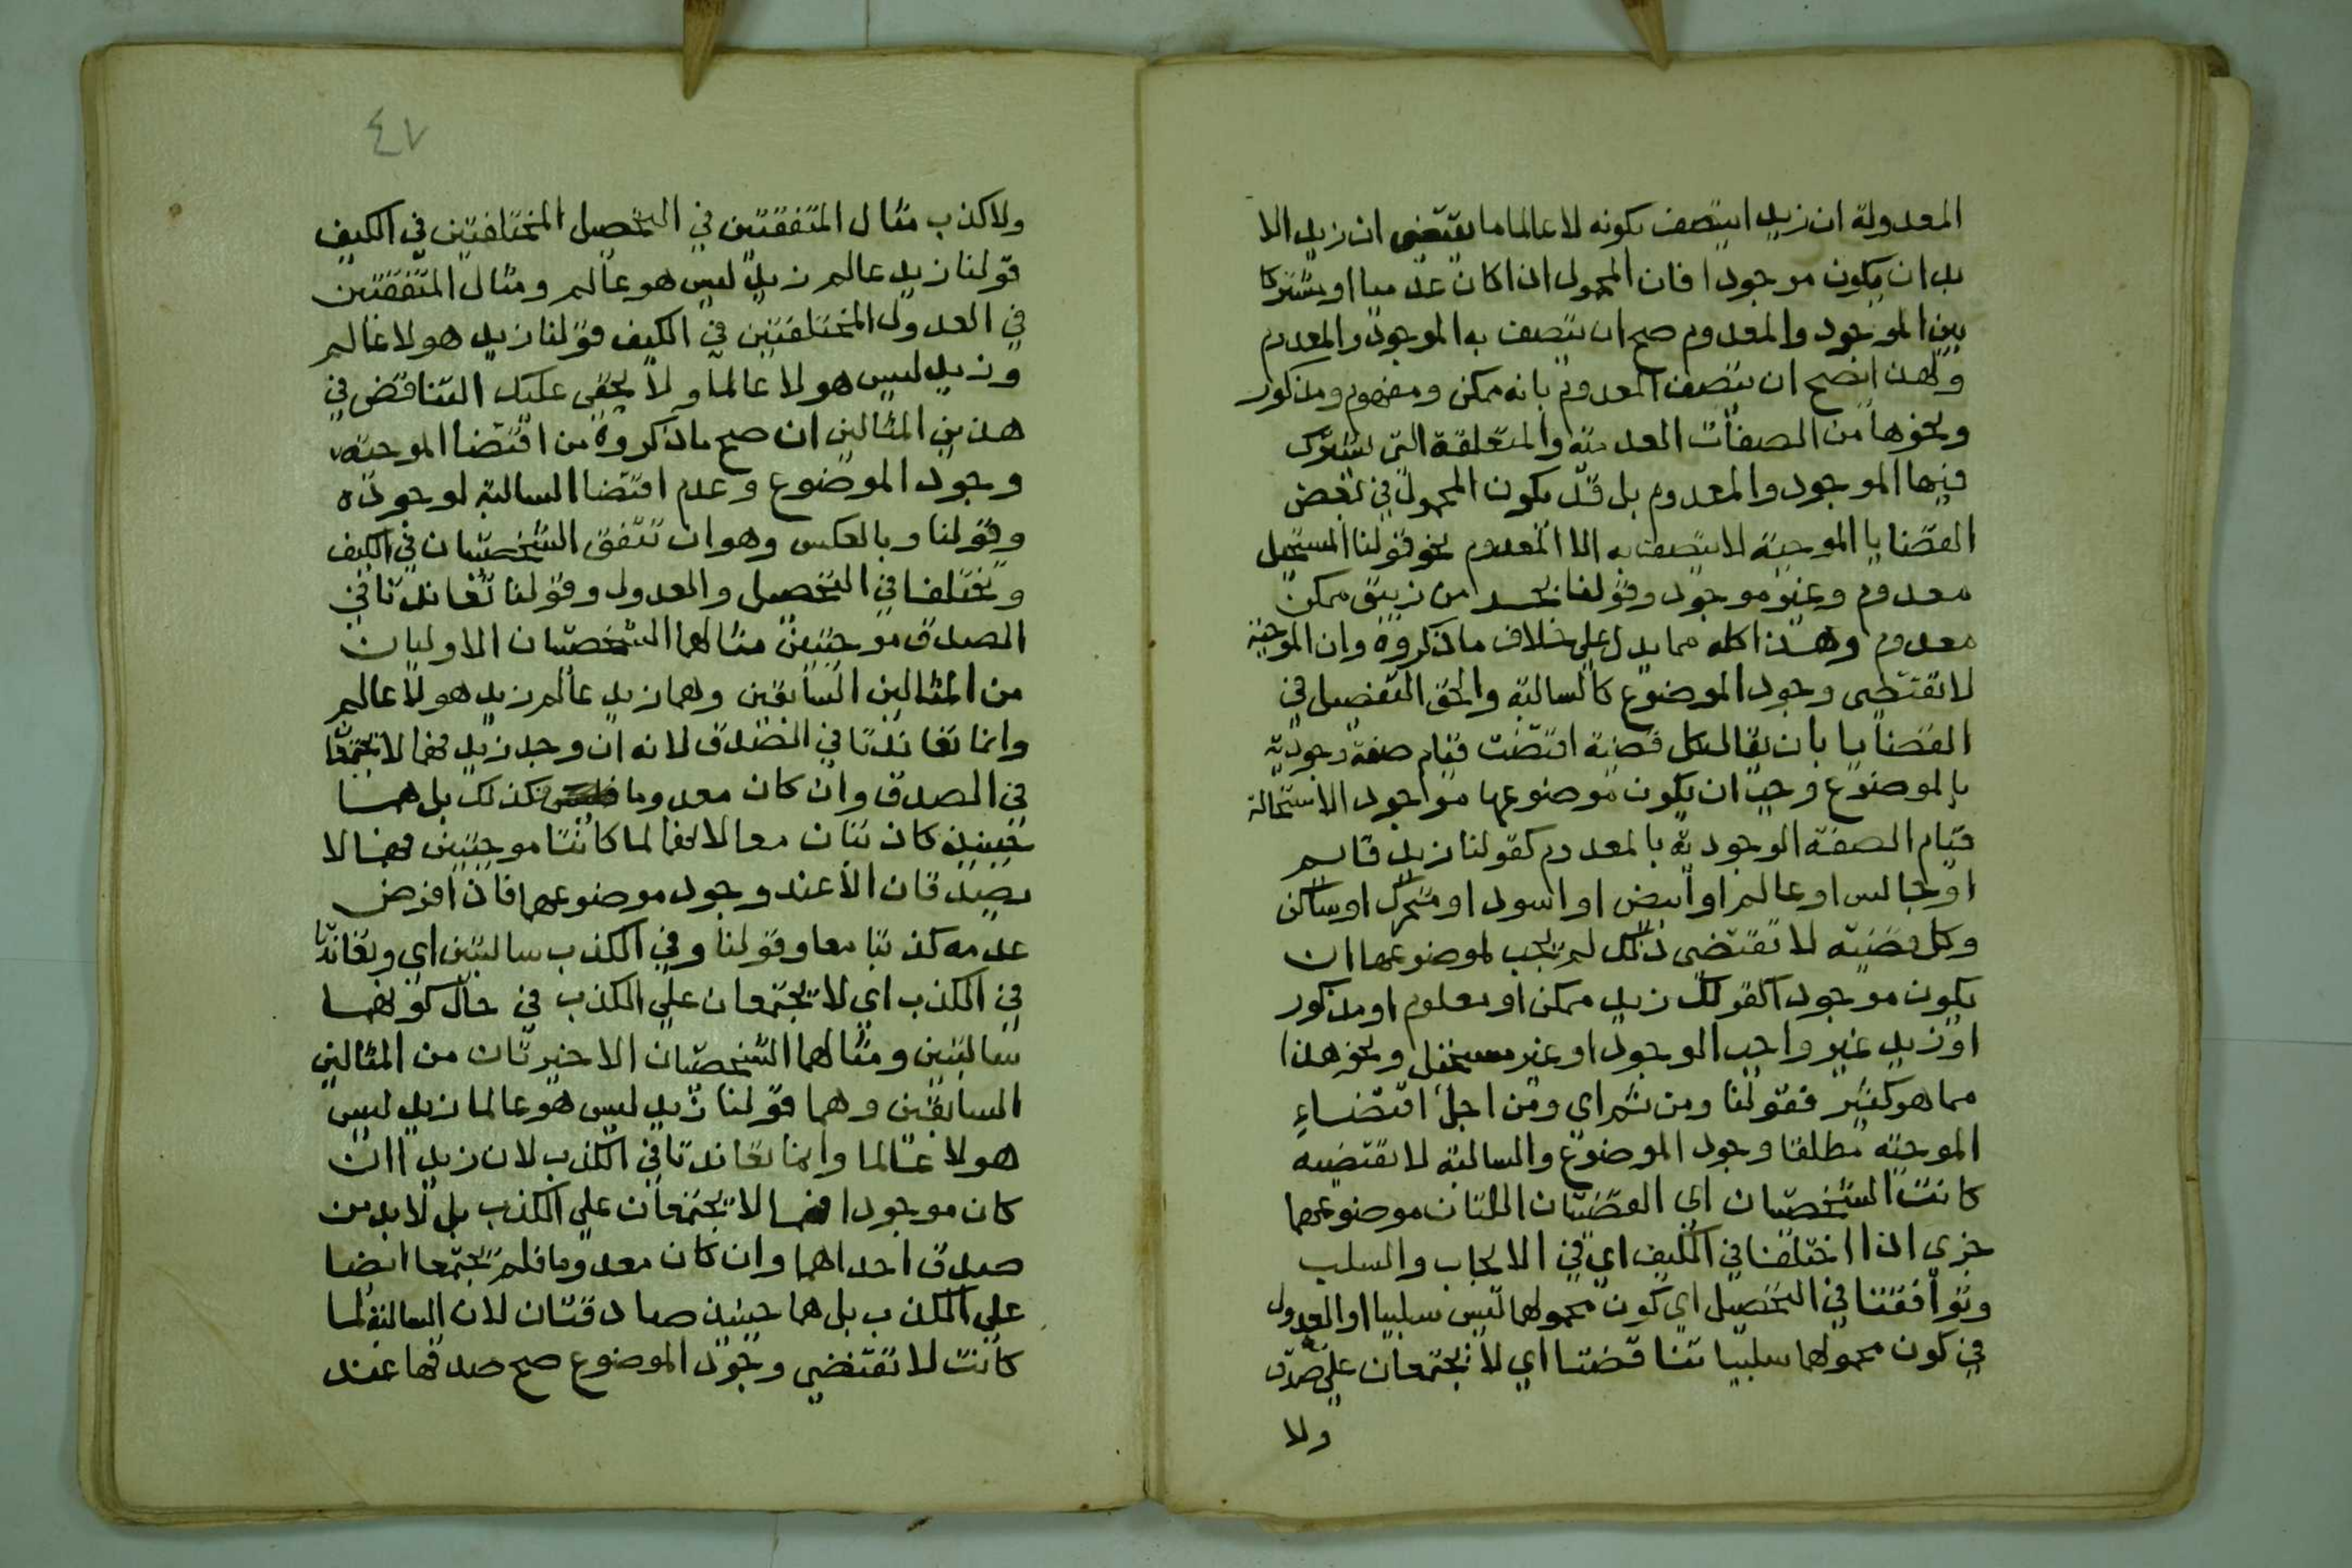 المعدولة ان زيدا يتصف بكونه لا عالما ما يقتضى ان زيد الا
بد ان يكون موجودا فان المحمول اذا كان عدميا او مشتركا
بين الموجود والمعدوم صح ان يتصف به الموجود والمعدوم
ولهذا يصح ان يتصف المعدوم بانه ممكن ومفهوم ومذكور
ونحوها من الصفات العدمية والمتعلقة التي يشترك
فيها الموجود والمعدوم بل قد يكون المحمول في بعض
القضايا الموجبة لا يتصف به الا المعدوم نحو قولنا المستحيل
معدوم وغير موجود وقولنا بحر من زيبق ممكن
معدوم وهذا كله مما يدل على خلاف ما ذكروه وان الموجبة
لا تقتضى وجود الموضوع كالسالبة والحق التفصيل في
القضايا بان يقال كل قضية اقتضت قيام صفة وجودية
بالموضوع وجب ان يكون موضوعها موجودا لاستحالة
قيام الصفة الوجودية بالمعدوم كقولنا زيد قايم
او جالس او عالم او ابيض او اسود او متحرك او ساكن
وكل قضية لا تقتضى ذلك لم يجب لموضوعها ان
يكون موجودا كقولك زيد ممكن او معلوم او مذكور
او زيد غير واجب الوجود او غير مستحيل ونحو هذا
مما هو كثير فقولنا ومن ثم اى ومن اجل اقتضاء
الموجبة مطلقا وجود الموضوع والسالبة لا تقتضيه
كانت الشخصيتان اي القضيتان اللتان موضوعهما
جزي اذا اختلفتا في الكيف اي في الايجاب والسلب
وتوافقتا في التحصيل اي كون محمولهما ليس سلبيا او العدول
في كون محمولهما سلبيا تناقضتا اي لا يجتمعان على صدق
ولا
٤٧
ولا كذب مثال المتفقتين في التحصيل المختلفتين في الكيف
قولنا زيد عالم زيد ليس هو عالم ومثال المتفقتين
في العدول المختلفتين في الكيف قولنا زيد هو لا عالم
وزيد ليس هو لا عالما ولا يخفى عليك التناقض في
هذين المثالين ان صح ما ذكروه من اقتضا الموجبة
وجود الموضوع وعدم اقتضا السالبة لوجوده
وقولنا وبالعكس وهو ان تتفق الشخصيتان في الكيف
وتختلفا في التحصيل والعدول وقولنا تعاندتا في
الصدق موجبتين مثالهما الشخصيتان الاوليان
من المثالين السابقين وهما زيد عالم زيد هو لا عالم
وانما تعاندتا في الصدق لانه ان وجد زيد فهما لا يجتمعا
في الصدق وان كان معدوما فكذلك بل هما
حينيذ كاذبتان معا لانهما لما كانتا موجبتين فهما لا
يصدقان الا عند وجود موضوعهما فاذا فرض
عدمه كذبتا معا وقولنا وفي الكذب سالبتين اي وتعاندتا
في الكذب اي لا يجتمعان على الكذب في حال كونهما
سالبتين ومثالهما الشخصيتان الاخيرتان من المثالين
السابقين وهما قولنا زيد ليس هو عالما زيد ليس
هو لا عالما وانما تعاندتا في الكذب لان زيدا ان
كان موجودا فهما لا يجتمعان على الكذب بل لا بد من
صدق احداهما وان كان معدوما فلم يجتمعا ايضا
على الكذب بل هما حينيذ صادقتان لان السالبة لما
كانت لا تقتضي وجود الموضوع صح صدقها عند